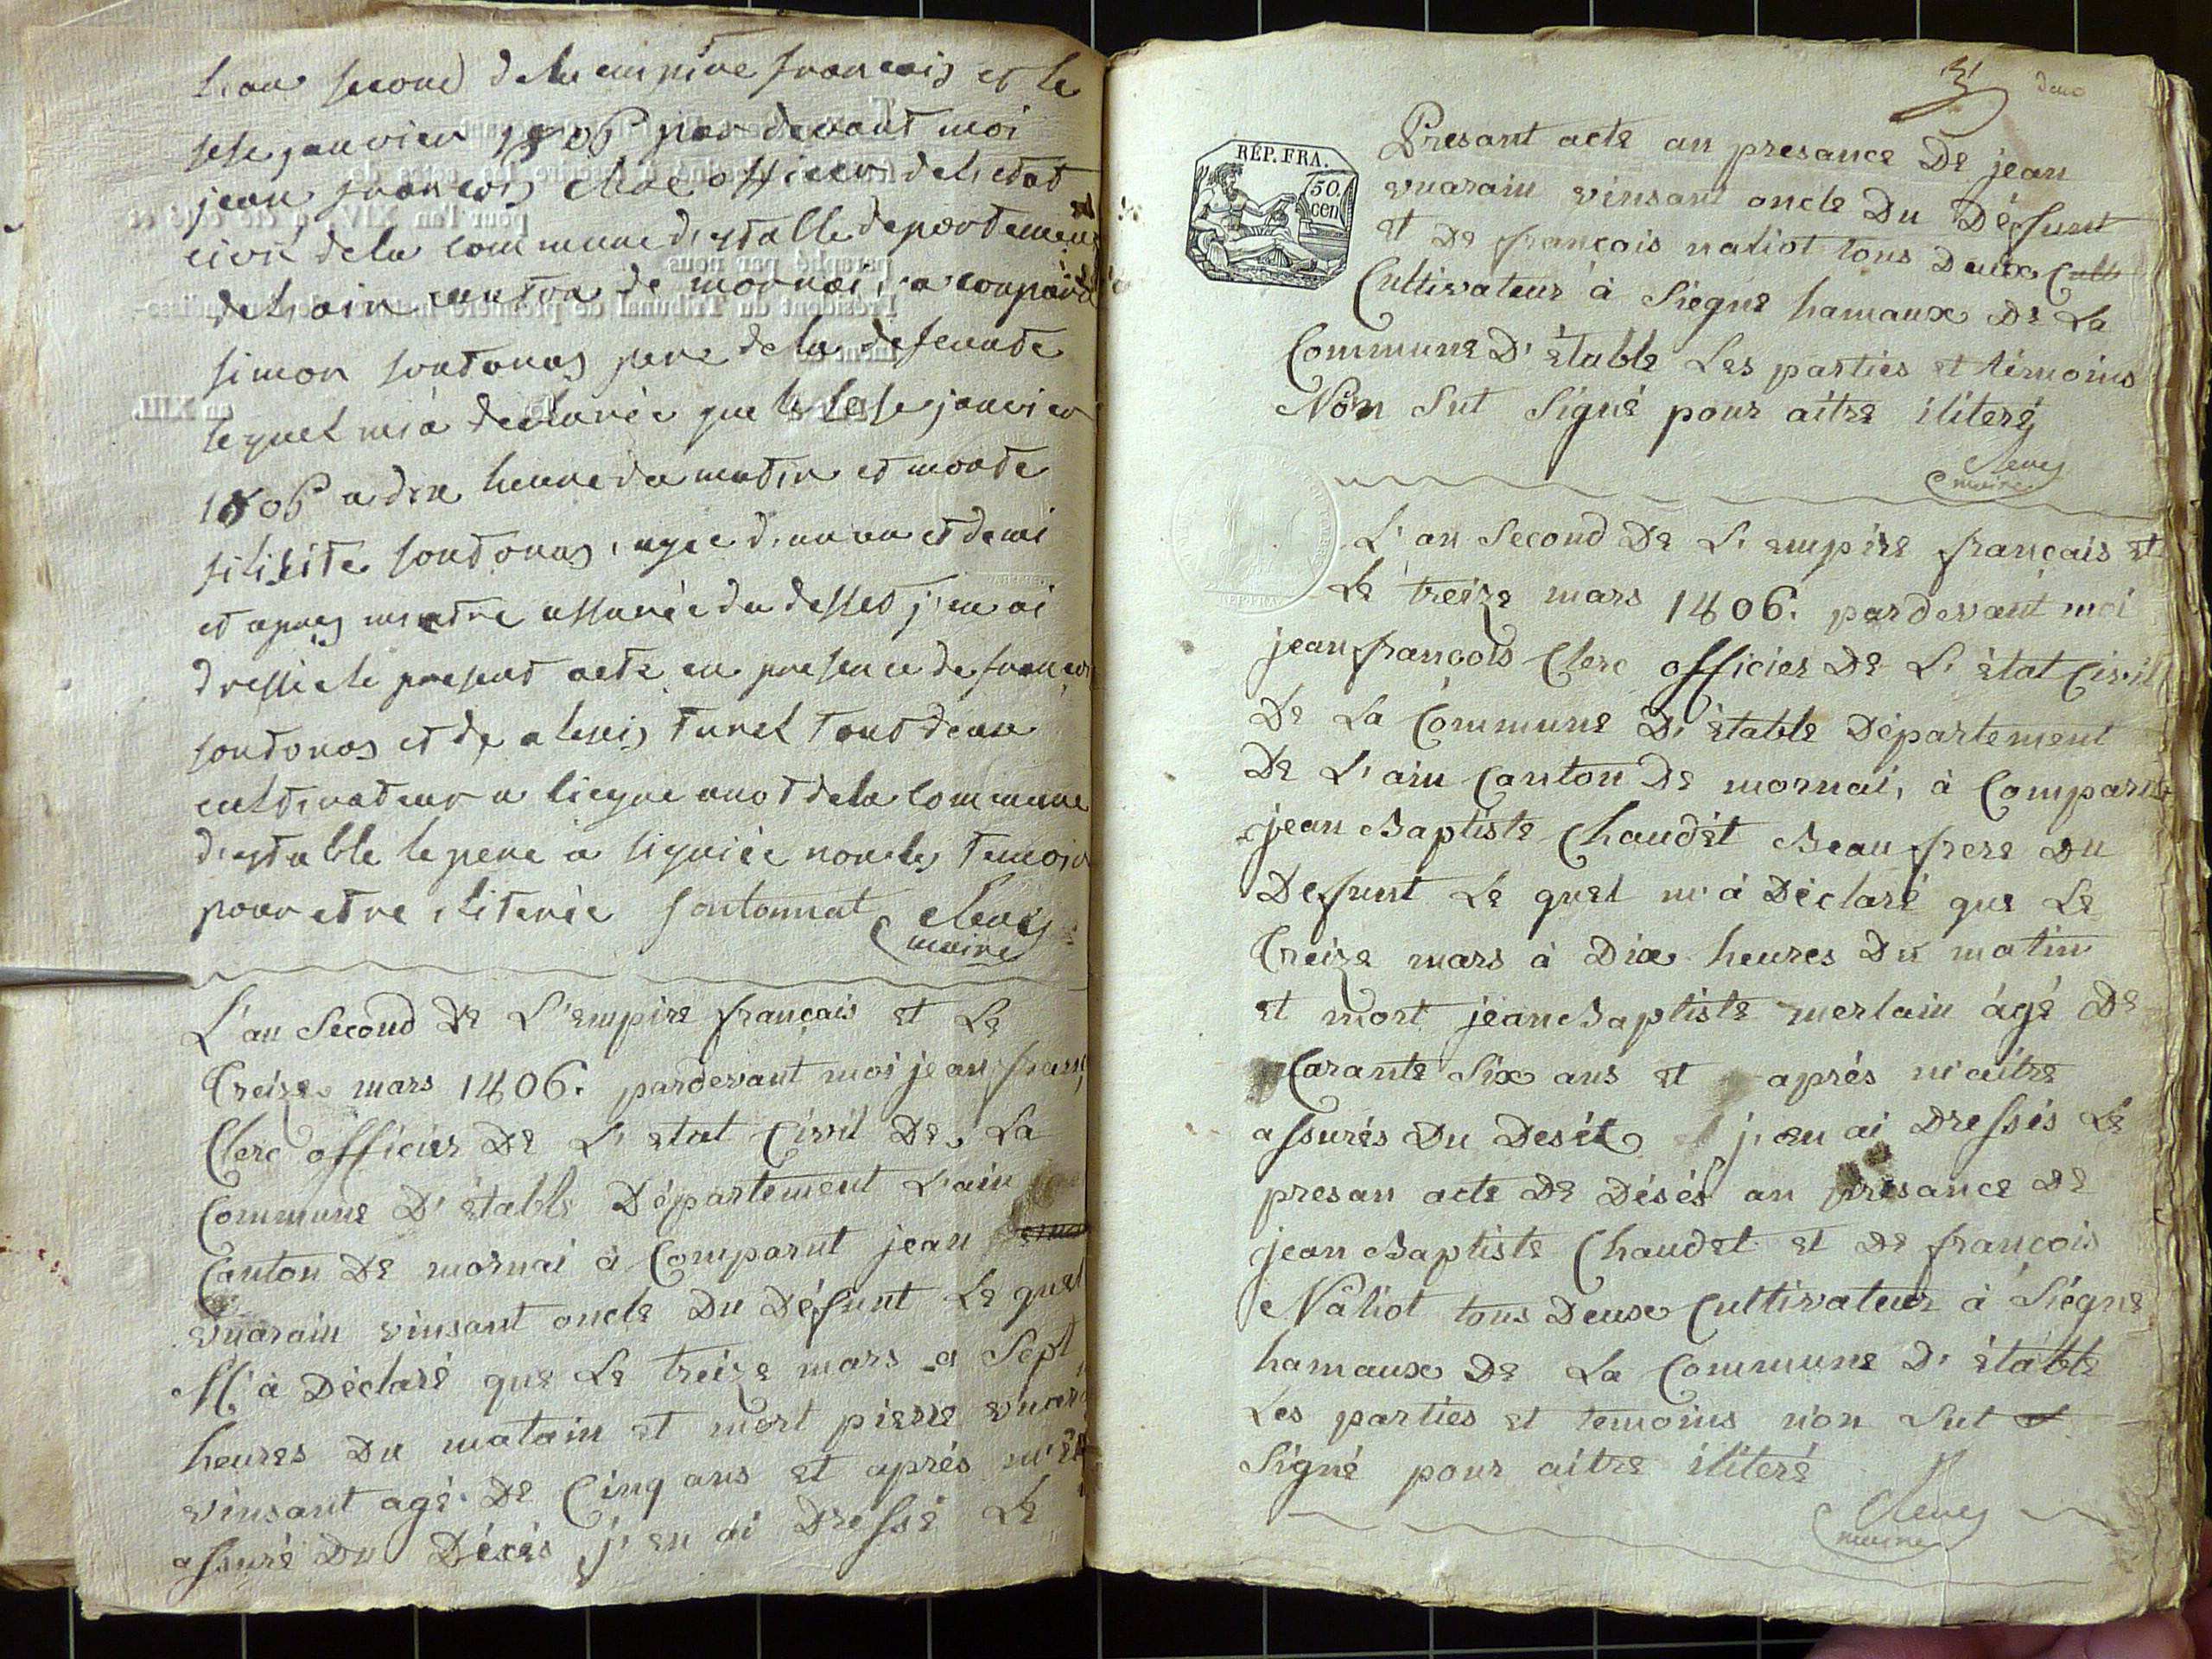 L'an second de la empire francais et le
sese janvier 1806 par devant moi
jean francois clerc officier de l'etat
civil de la commune d'estable departement
de l'ain canton de mornai, a comparu
simon sontonas pere de la defeunte
lequel m'a declarée que le sese janvier
1806 a dix heure du matin et morte
filisite sontonas, agee d'un an et demi
et apres m'etre assurée du desses j'en ai
dressé le present acte en presence de francois
sontonas et de alexis turel tout deux
cultivateur a siegne amot de la commune
d'estable le pere a signiée non les temoin
pour etre iliterée sontonnat Clerc
maire
L'an Second De L'empire français et Le
Treize mars 1806. pardevant moi jean fran
Clerc officier De L'etat Civil De La
Commune D'étable Département L'ain
Canton De mornai à Comparut jean
vuarain vinsant oncle Du Défunt Le quel
M'à Déclaré que Le treize mars a Sept
heures Du matain et mort pierre vuarain
vinsant agé De Cinq ans et aprés m'êtr
assuré Du Décés j'en ai Dressé Le
3 deux
RÉP. FRA.
50. cen
Presant acte an presance De jean
vuarain vinsant oncle Du Défunt
et De françois naliot tous Deux Cult
Cultivateur à Siegne hamaux De La
Commune D'étable Les parties et témoins
Non Sut Signé pour aitre iliteré
Clerc
maire
L'an Second De L'empire français et
Le treize mars 1806. pardevant moi
jean françois Clerc officier De L'état Civil
De La Commune D'étable Département
De L'ain Canton De mornai, à Comparut
jean Baptiste Chaudet Beau frere Du
Defunt Le quel m'à Déclaré que Le
Treize mars à Dix heures Du matin
et mort jean Baptiste merlain âgé De
Carante Six ans et aprés m'aitre
assurés Du Desét j'en ai Dressés Le
presan acte De Désés an présance De
jean Baptiste Chaudet et De françois
Naliot tous Deux Cultivateur à Siégne
hamaux De La Commune D'étable
Les parties et temoins non Sut et
Signé pour aitre iliteré
Clerc
maire